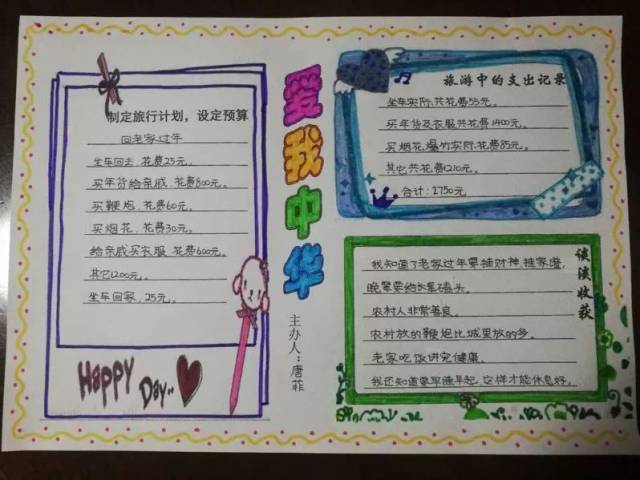 制定旅行计划，设定预算
回老家过年
坐车回去，花费25元。
买年货给亲戚，花费800元。
买鞭炮，花费60元。
买烟花，花费30元。
给亲戚买衣服，花费600元。
其它1200元。
坐车回家，25元。
Happy
Day..
爱我中华
主办人：唐菲
旅游中的支出记录
坐车实际共花费55元。
买年货及衣服共花费1400元。
买烟花、爆竹实际花费85元。
其它共花费1210元。
合计：2750元
谈谈收获
我知道了老家过年要插财神，挂家谱，
晚辈要给长辈磕头。
农村人非常善良。
农村放的鞭炮比城里放的多。
老家吃饭讲究健康。
我还知道要早睡早起，这样才能休息好。